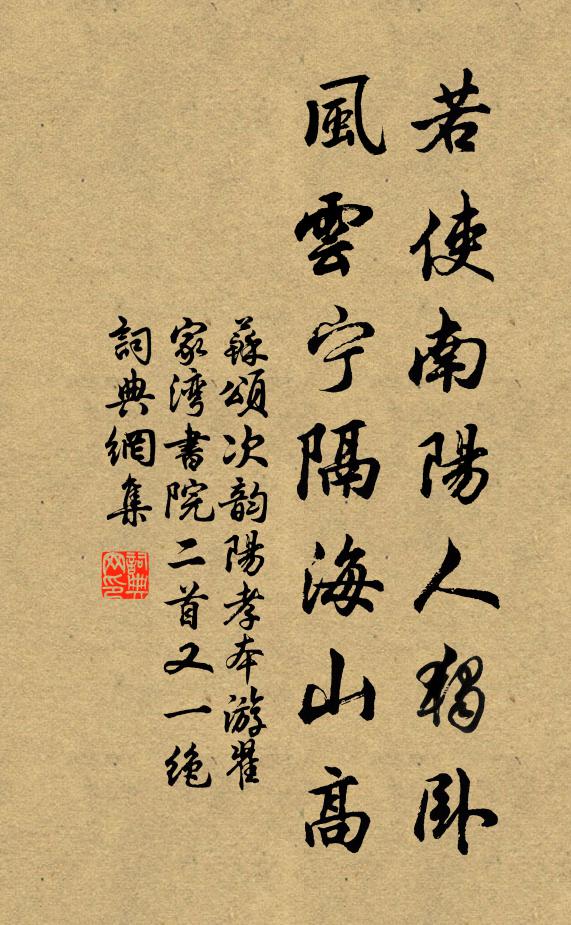 若使南陽人獨臥
風雲宁隔海山高
蘇頌次韵陽孝本游瞿
家湾書院二首又一絶
詞典網集
詞典
网印